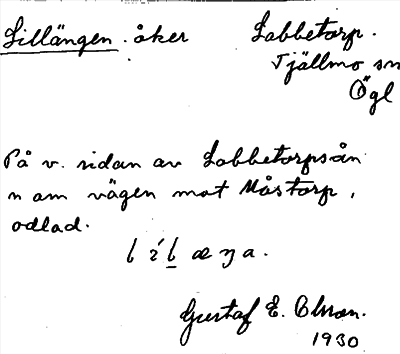 Lillängen. åker Labbetorp.
Tjällmo sn
Ögl
På v. sidan av Labbetorpsån
n om vägen mot Måstorp,
odlad.
Gustaf E. Olsson.
1930